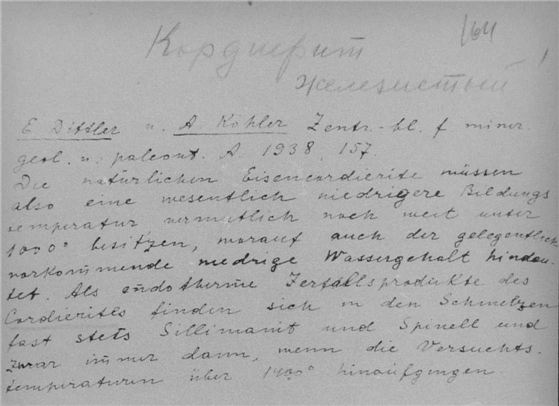 164
Кордиерит
железистый
E Dittler u. A. Köhler Zentr.-bl. f. miner.
geol. u. paleont. A 1938, 157.
Die natürlichen Eisencordierite müssen
also eine wesentlich niedrigere Bildungs
temperatur vermutlich noch weit unter
1000° besitzen, worauf auch der gelegentlich
vorkommende niedrige Wassergehalt hindeu-
tet. Als endotherme Zerfallsprodukte des
Cordierites finden sich in den Schmelzen
fast stets Sillimanit und Spinell und
zwar immer dann, wenn die Versuchs-
temperaturen über 1400° hinaufgingen.